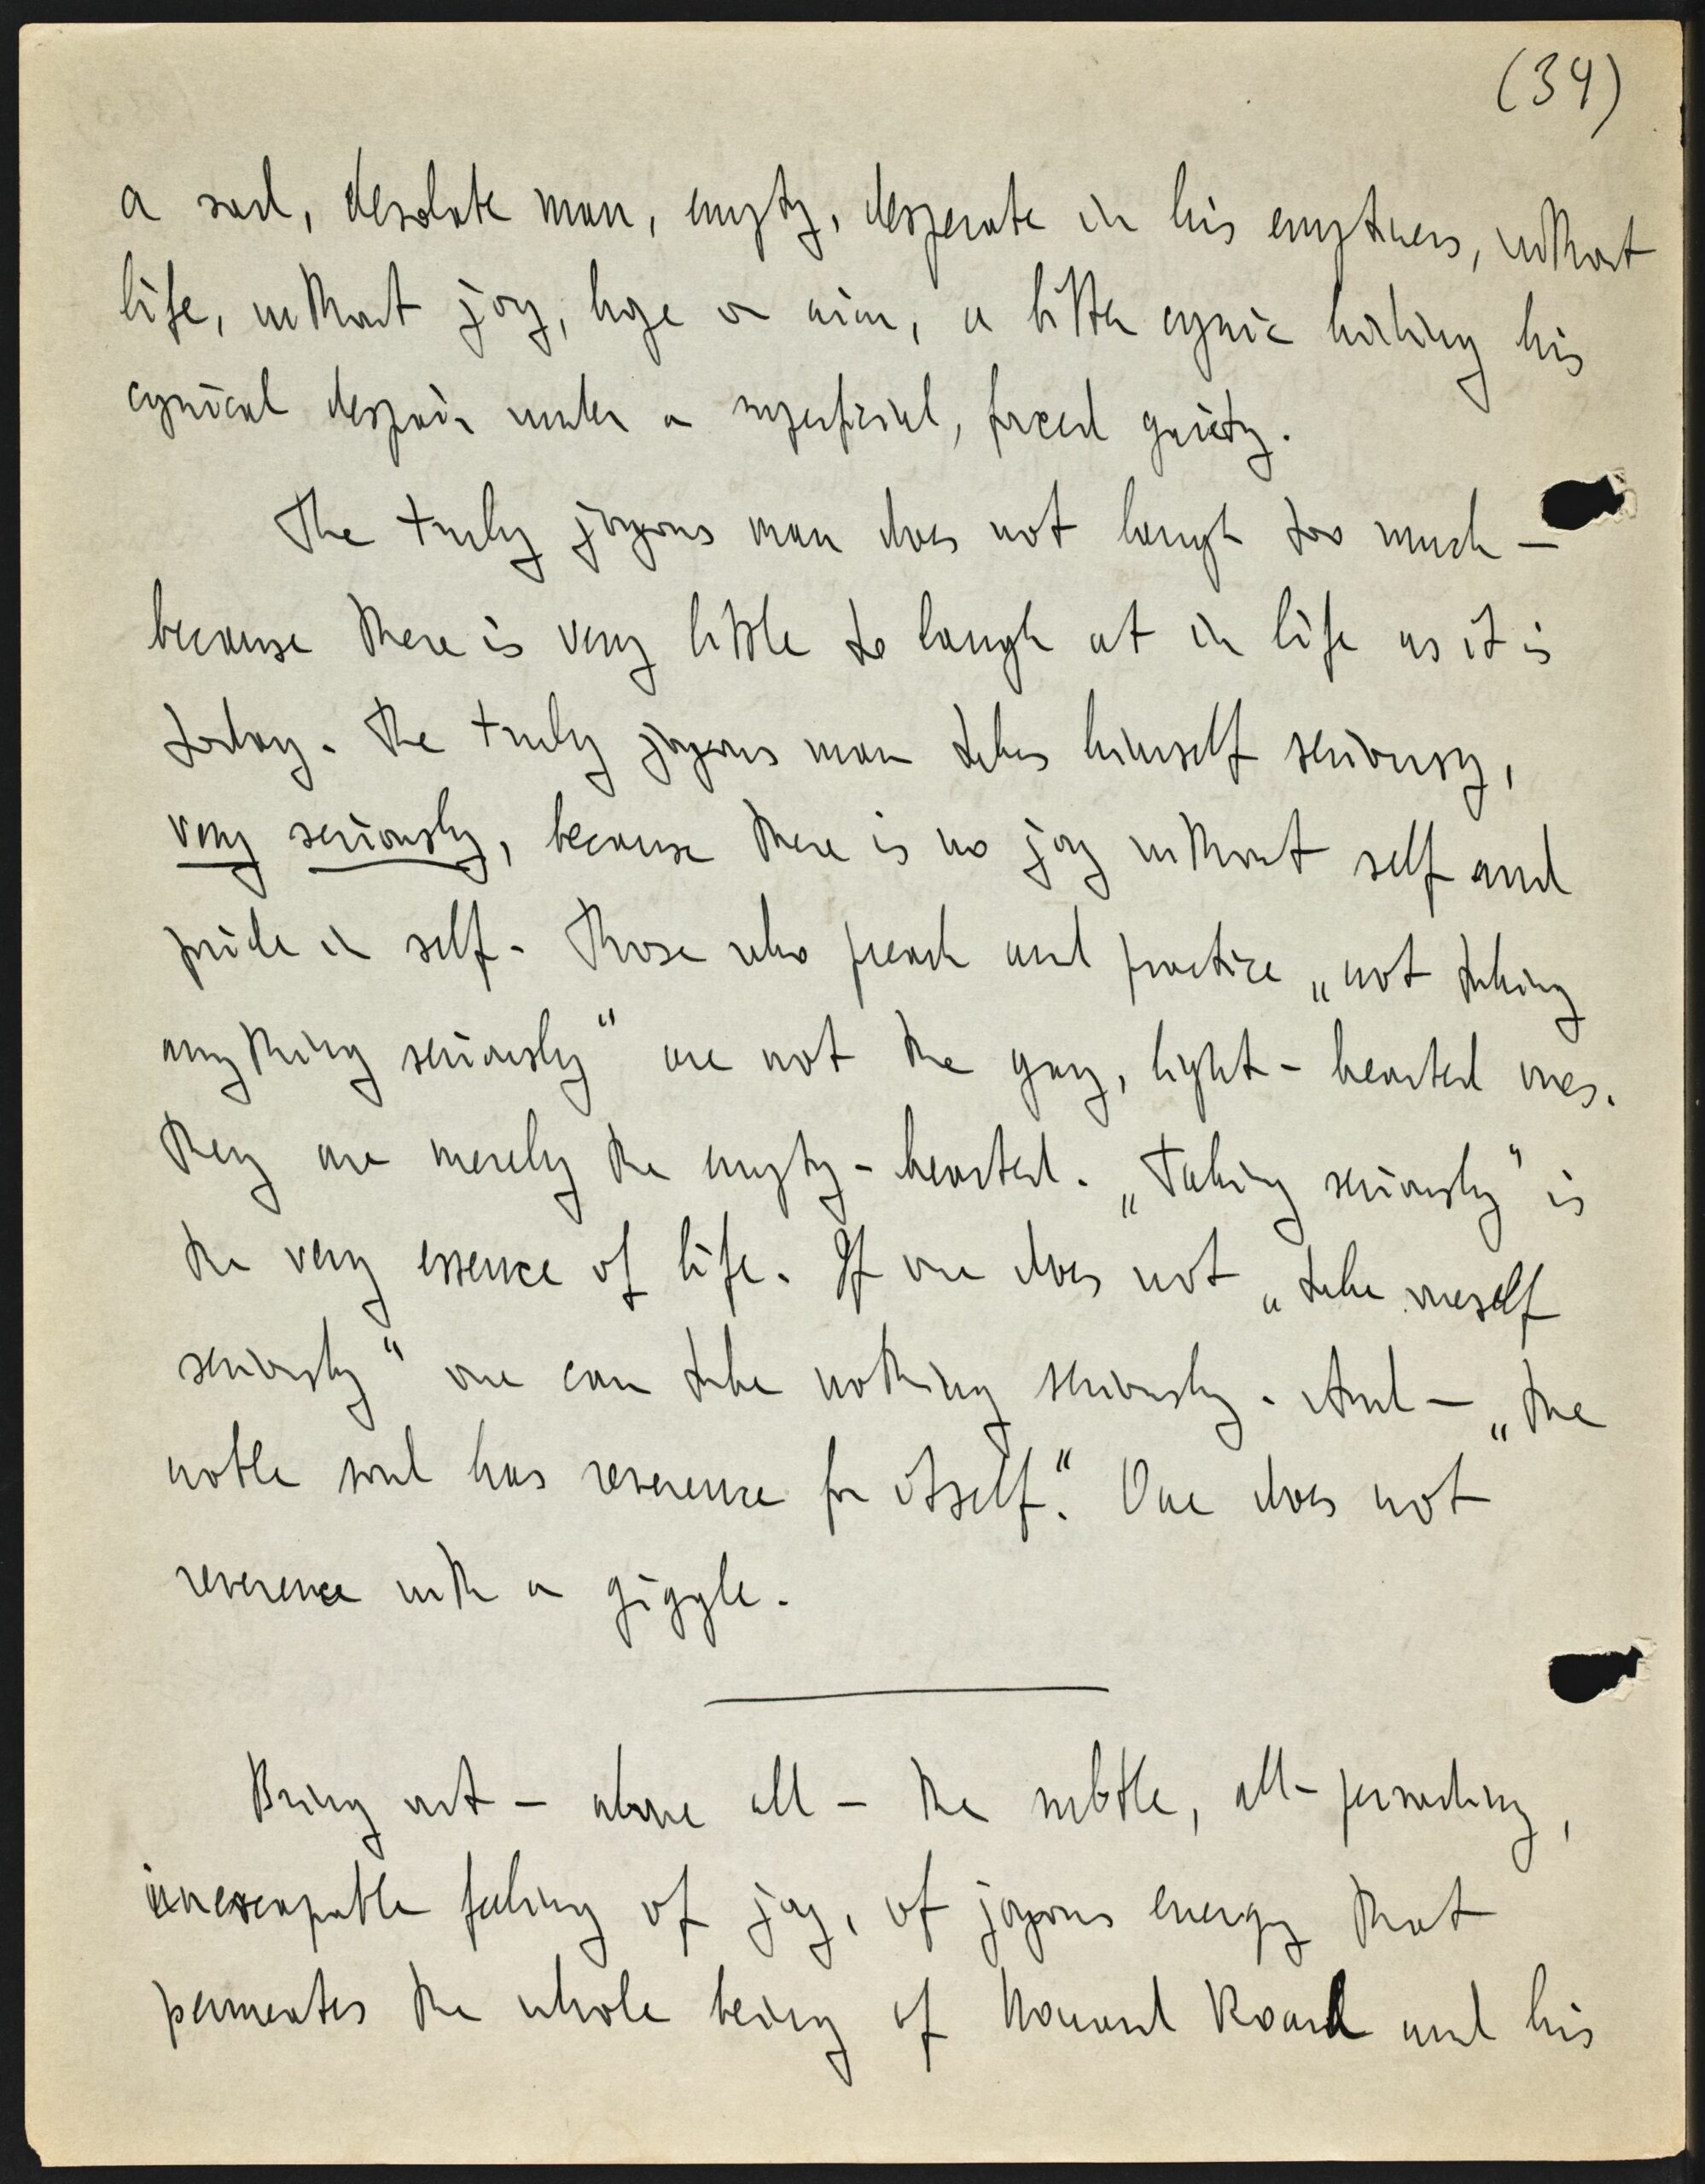 (34)
a sad, desolate man, empty, desperate in his emptiness, without
life, without joy, hope or aim, a bitter cynic hiding his
cynical despair under a superficial, forced gaiety.
The truly joyous man does not laugh too much —
because there is very little to laugh at in life as it is
today. The truly joyous man takes himself seriousy,
very seriously, because there is no joy without self and
pride in self. Those who preach and practice „not taking
anything seriously“ are not the gay, light-hearted ones.
They are merely the empty-hearted. „Taking seriously“ is
the very essence of life. If one does not „take oneself
seriously“ one can take nothing seriously. And — „the
noble soul has reverence for itself.“ One does not
reverence with a giggle.
Bring out — above all — the subtle, all-pervading,
inescapable feeling of joy, of joyous energy that
permeates the whole being of Howard Roark and his